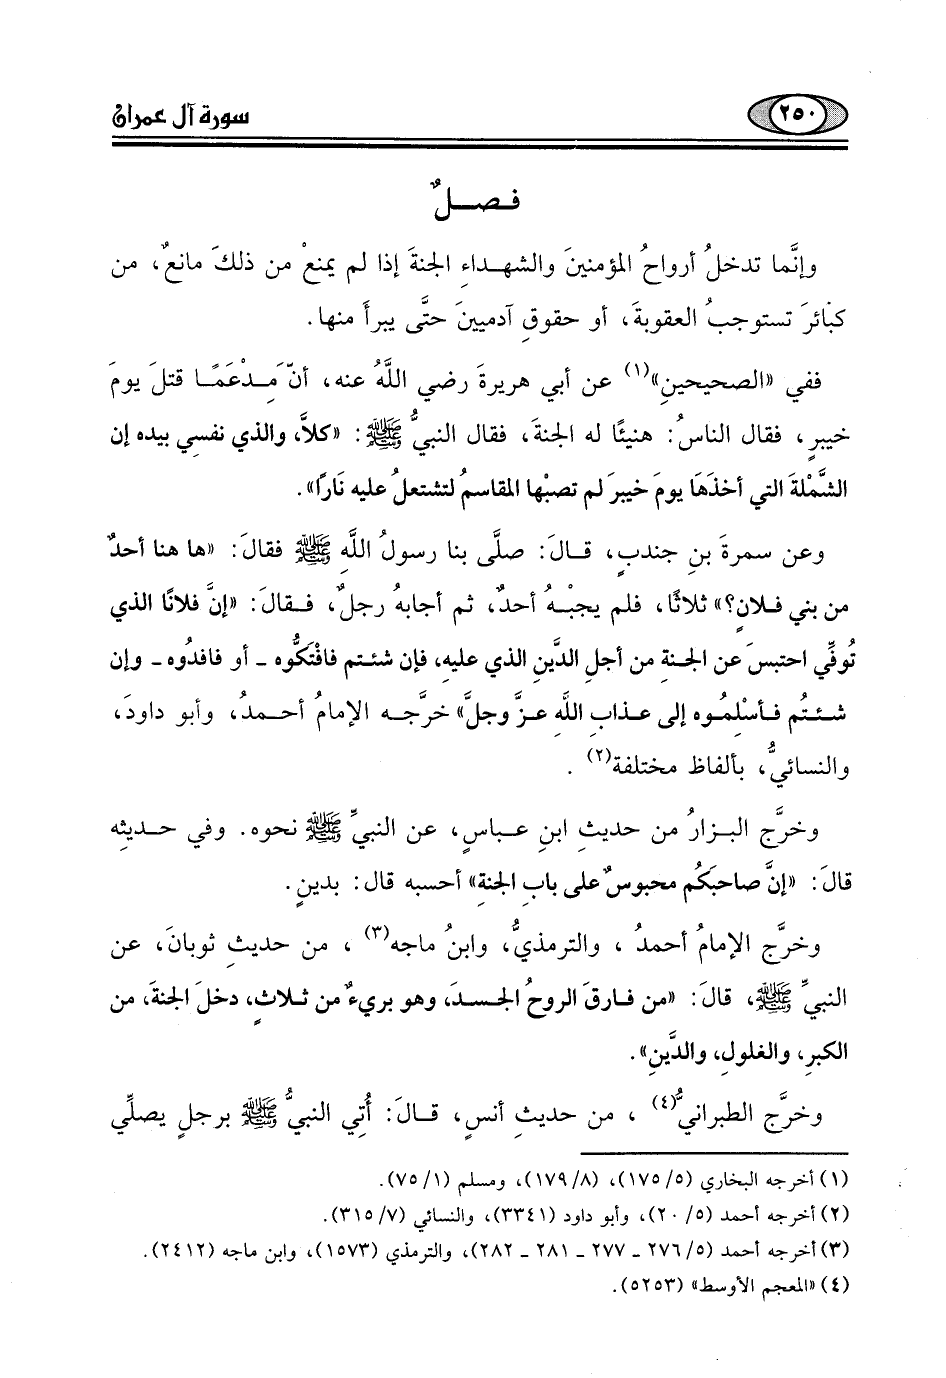 ٢٥٠ سورة آل عمران
فـصـــلٌ
وإنَّما تدخلُ أرواحُ المؤمنينَ والشهـداءِ الجنةَ إذا لم يمنعْ من ذلكَ مانعٌ، من
كبائرَ تستوجبُ العقوبةَ، أو حقوقِ آدميينَ حتَّى يبرأَ منها.
ففي «الصحيحينِ»(١) عن أبي هريرةَ رضي اللَّهُ عنه، أنّ مِـدْعَمًا قتلَ يومَ
خيبرٍ، فقال الناسُ: هنيئًا له الجنةَ، فقال النبيُّ ﷺ: «كلاَّ، والذي نفسِي بيده إن
الشَّمْلةَ التي أخذَهَا يومَ خيبرَ لم تصبْها المقاسمُ لتشتعلُ عليه نَارًا».
وعن سمرةَ بنِ جندبٍ، قـالَ: صلَّى بنا رسولُ اللَّهِ ﷺ فقالَ: «ها هنا أحدٌ
من بني فـلانٍ؟» ثلاثًا، فلم يجبْـهُ أحدٌ، ثم أجابهُ رجلٌ، فـقالَ: «إنَّ فلانًا الذي
تُوفِّي احتبسَ عن الجنةِ من أجلِ الدَّينِ الذي عليهِ، فإن شئتم فافْتكُّوه ـ أو فافدُوه ـ وإن
شـئـتُم فـأسْلِمُـوه إلى عـذابِ اللَّهِ عـزَّ وجلَّ» خرَّجـه الإمامُ أحـمدُ، وأبو داودَ،
والنسائيُّ، بألفاظ مختلفة(٢) .
وخرَّج البـزارُ من حديثِ ابنِ عـباسٍ، عن النبيِّ ﷺ نحوه. وفي حـديثِه
قالَ: «إنَّ صاحبَكُم محبوسٌ على بابِ الجنةِ» أحسبه قال: بدينٍ.
وخرَّج الإمامُ أحمدُ ، والترمذيُّ، وابنُ ماجه(٣) ، من حديثِ ثوبانَ، عن
النبيِّ ﷺ، قالَ: «من فـارقَ الروحُ الجسـدَ، وهو بريءٌ من ثـلاثٍ، دخلَ الجنةَ، من
الكبرِ، والغلولِ، والدَّينِ».
وخرَّج الطبرانيُّ(٤) ، من حديثِ أنسٍ، قـالَ: أُتِي النبيُّ ﷺ برجلٍ يصلِّي
(١) أخرجه البخاري (١٧٥/٥)، (١٧٩/٨)، ومسلم (٧٥/١).
(٢) أخرجه أحمد (٢٠/٥)، وأبو داود (٣٣٤١)، والنسائي (٣١٥/٧).
(٣) أخرجه أحمد (٢٧٦/٥ ـ ٢٧٧ ـ ٢٨١ ـ ٢٨٢)، والترمذي (١٥٧٣)، وابن ماجه (٢٤١٢).
(٤) «المعجم الأوسط» (٥٢٥٣).